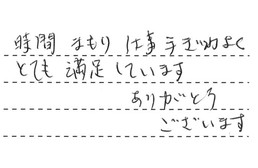 時間 まもり 仕事 手ぎわよく
とても 満足しています
ありがとう
ございます